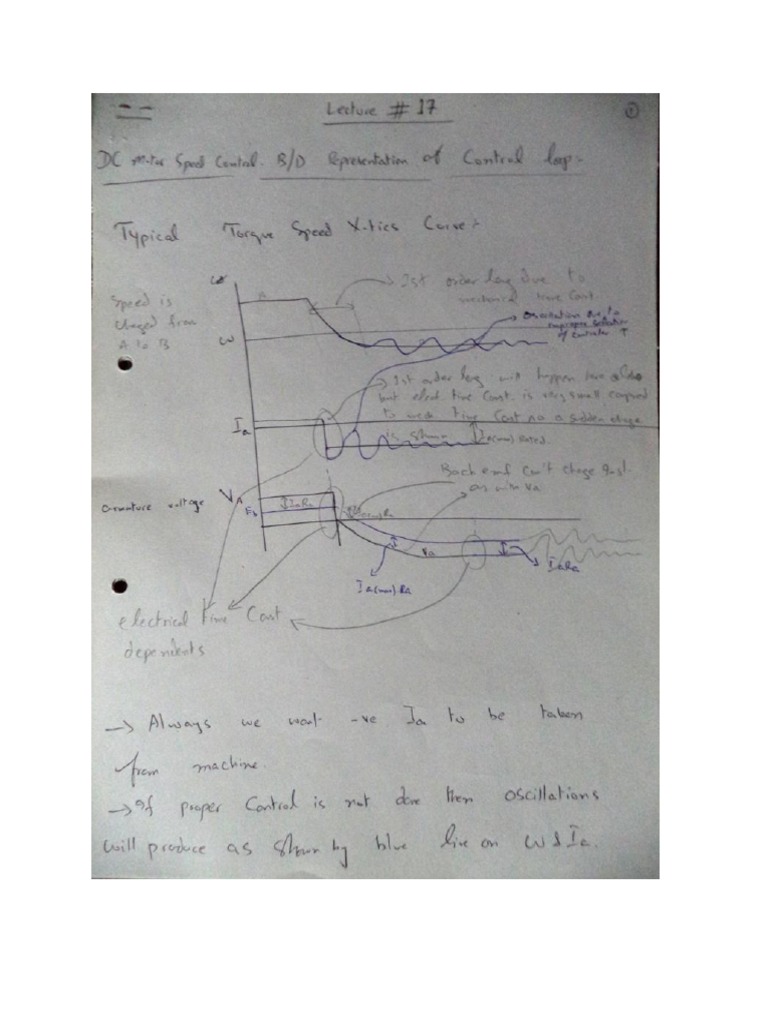 Lecture # 17
①
DC Motor Speed Control. B/D Representation of Control loop:-
Typical Torque Speed X-tics Curve:-
Speed is
changed from
A to B
ω
A
1st order lag due to
mechanical time Const.
Oscillation due to
improper selection
of controller
ω
1st order lag will happen here also
but elect. time Const. is very small compared
to mech time Const so a sudden change
is shown
Ia
Ia(max) rated.
Back emf Can't change inst.
as with Va
armature voltage
VA
IaRa
Eb
Ia(max)Ra
Va
IaRa
Ia(max).RA
electrical time Const
dependents
→ Always we want -ve Ia to be taken
from machine.
→ If proper Control is not done then oscillations
will produce as shown by blue line on W & Ia.